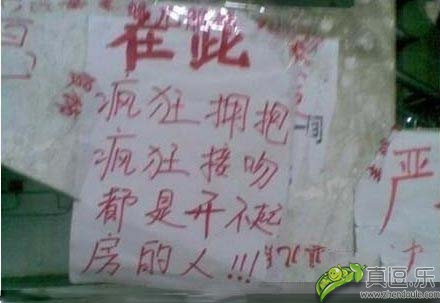 在此
疯狂拥抱
疯狂接吻
都是开不起
房的人!!!
严
真逗乐
www.zhendoule.com